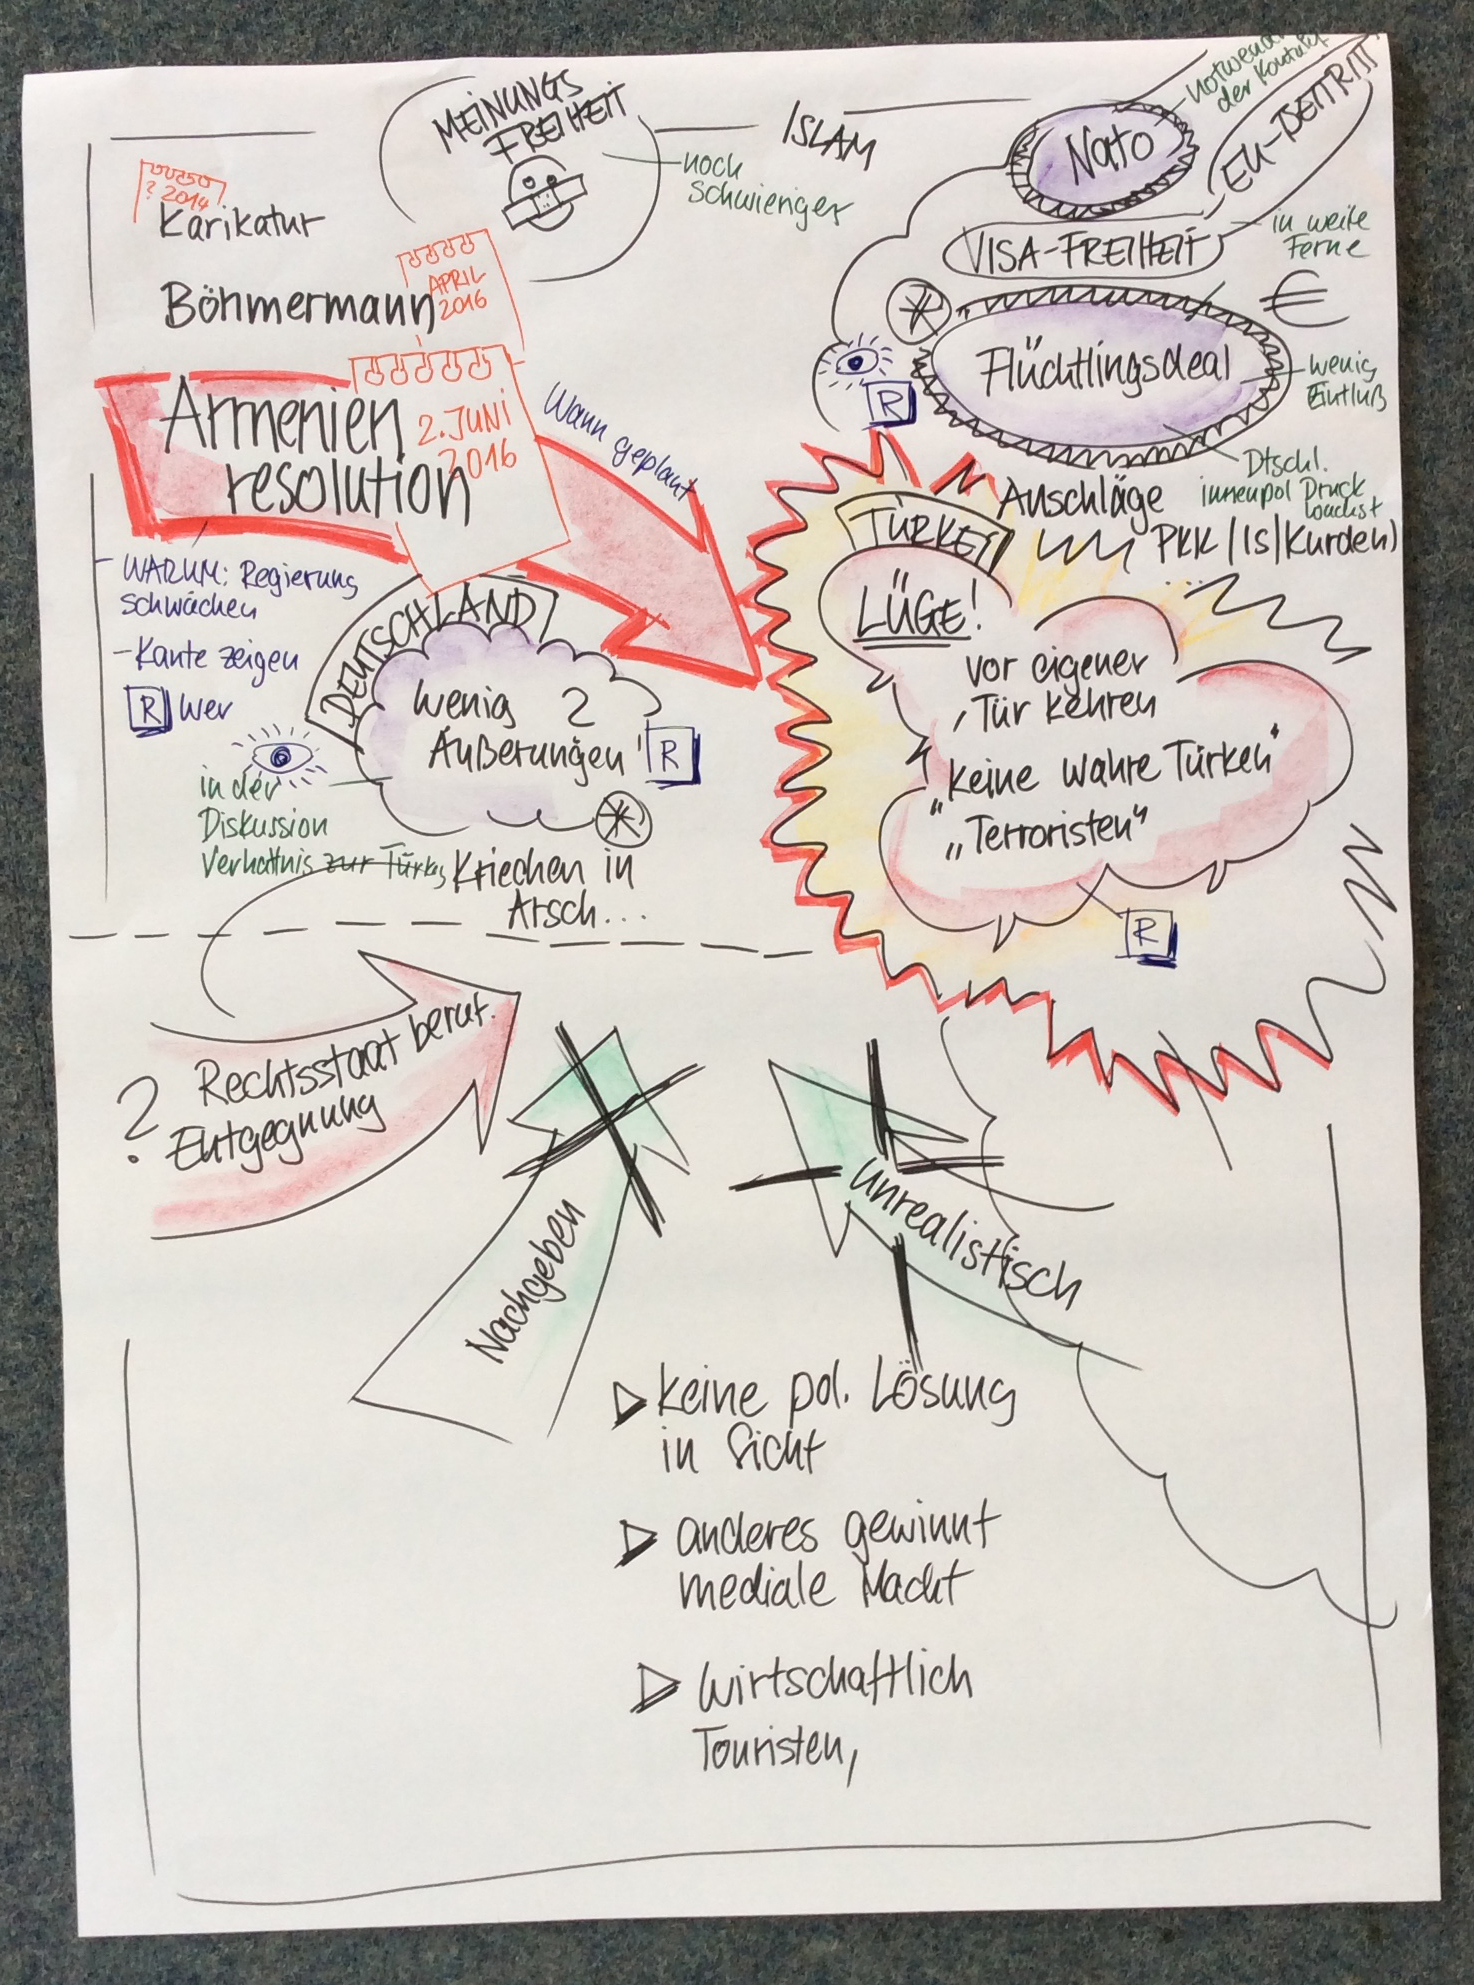 MEINUNGS
FREIHEIT
noch
schwieriger
ISLAM
Nato
EU-BEITRITT
VISA-FREIHEIT
in weite
Ferne
€
Flüchtlingsdeal
wenig
Einfluß
Dtschl.
innenpol Druck
wächst
? 2014
Karikatur
Böhmermann
APRIL
2016
Armenien
resolution
2. JUNI
2016
Wann geplant
WARUM: Regierung
schwächen
- Kante zeigen
R Wer
R
Anschläge
PKK / IS / Kurden)
TÜRKEI
LÜGE!
vor eigener
Tür kehren
"keine wahre Türken"
„Terroristen"
R
DEUTSCHLAND
wenig 2
Äußerungen
R
in der
Diskussion
Verhältnis zur Türkei
Kriechen in
Arsch...
? Rechtsstaat beruf.
Entgegnung
Nachgeben
unrealistisch
keine pol. Lösung
in Sicht
anderes gewinnt
mediale Macht
wirtschaftlich
Touristen,